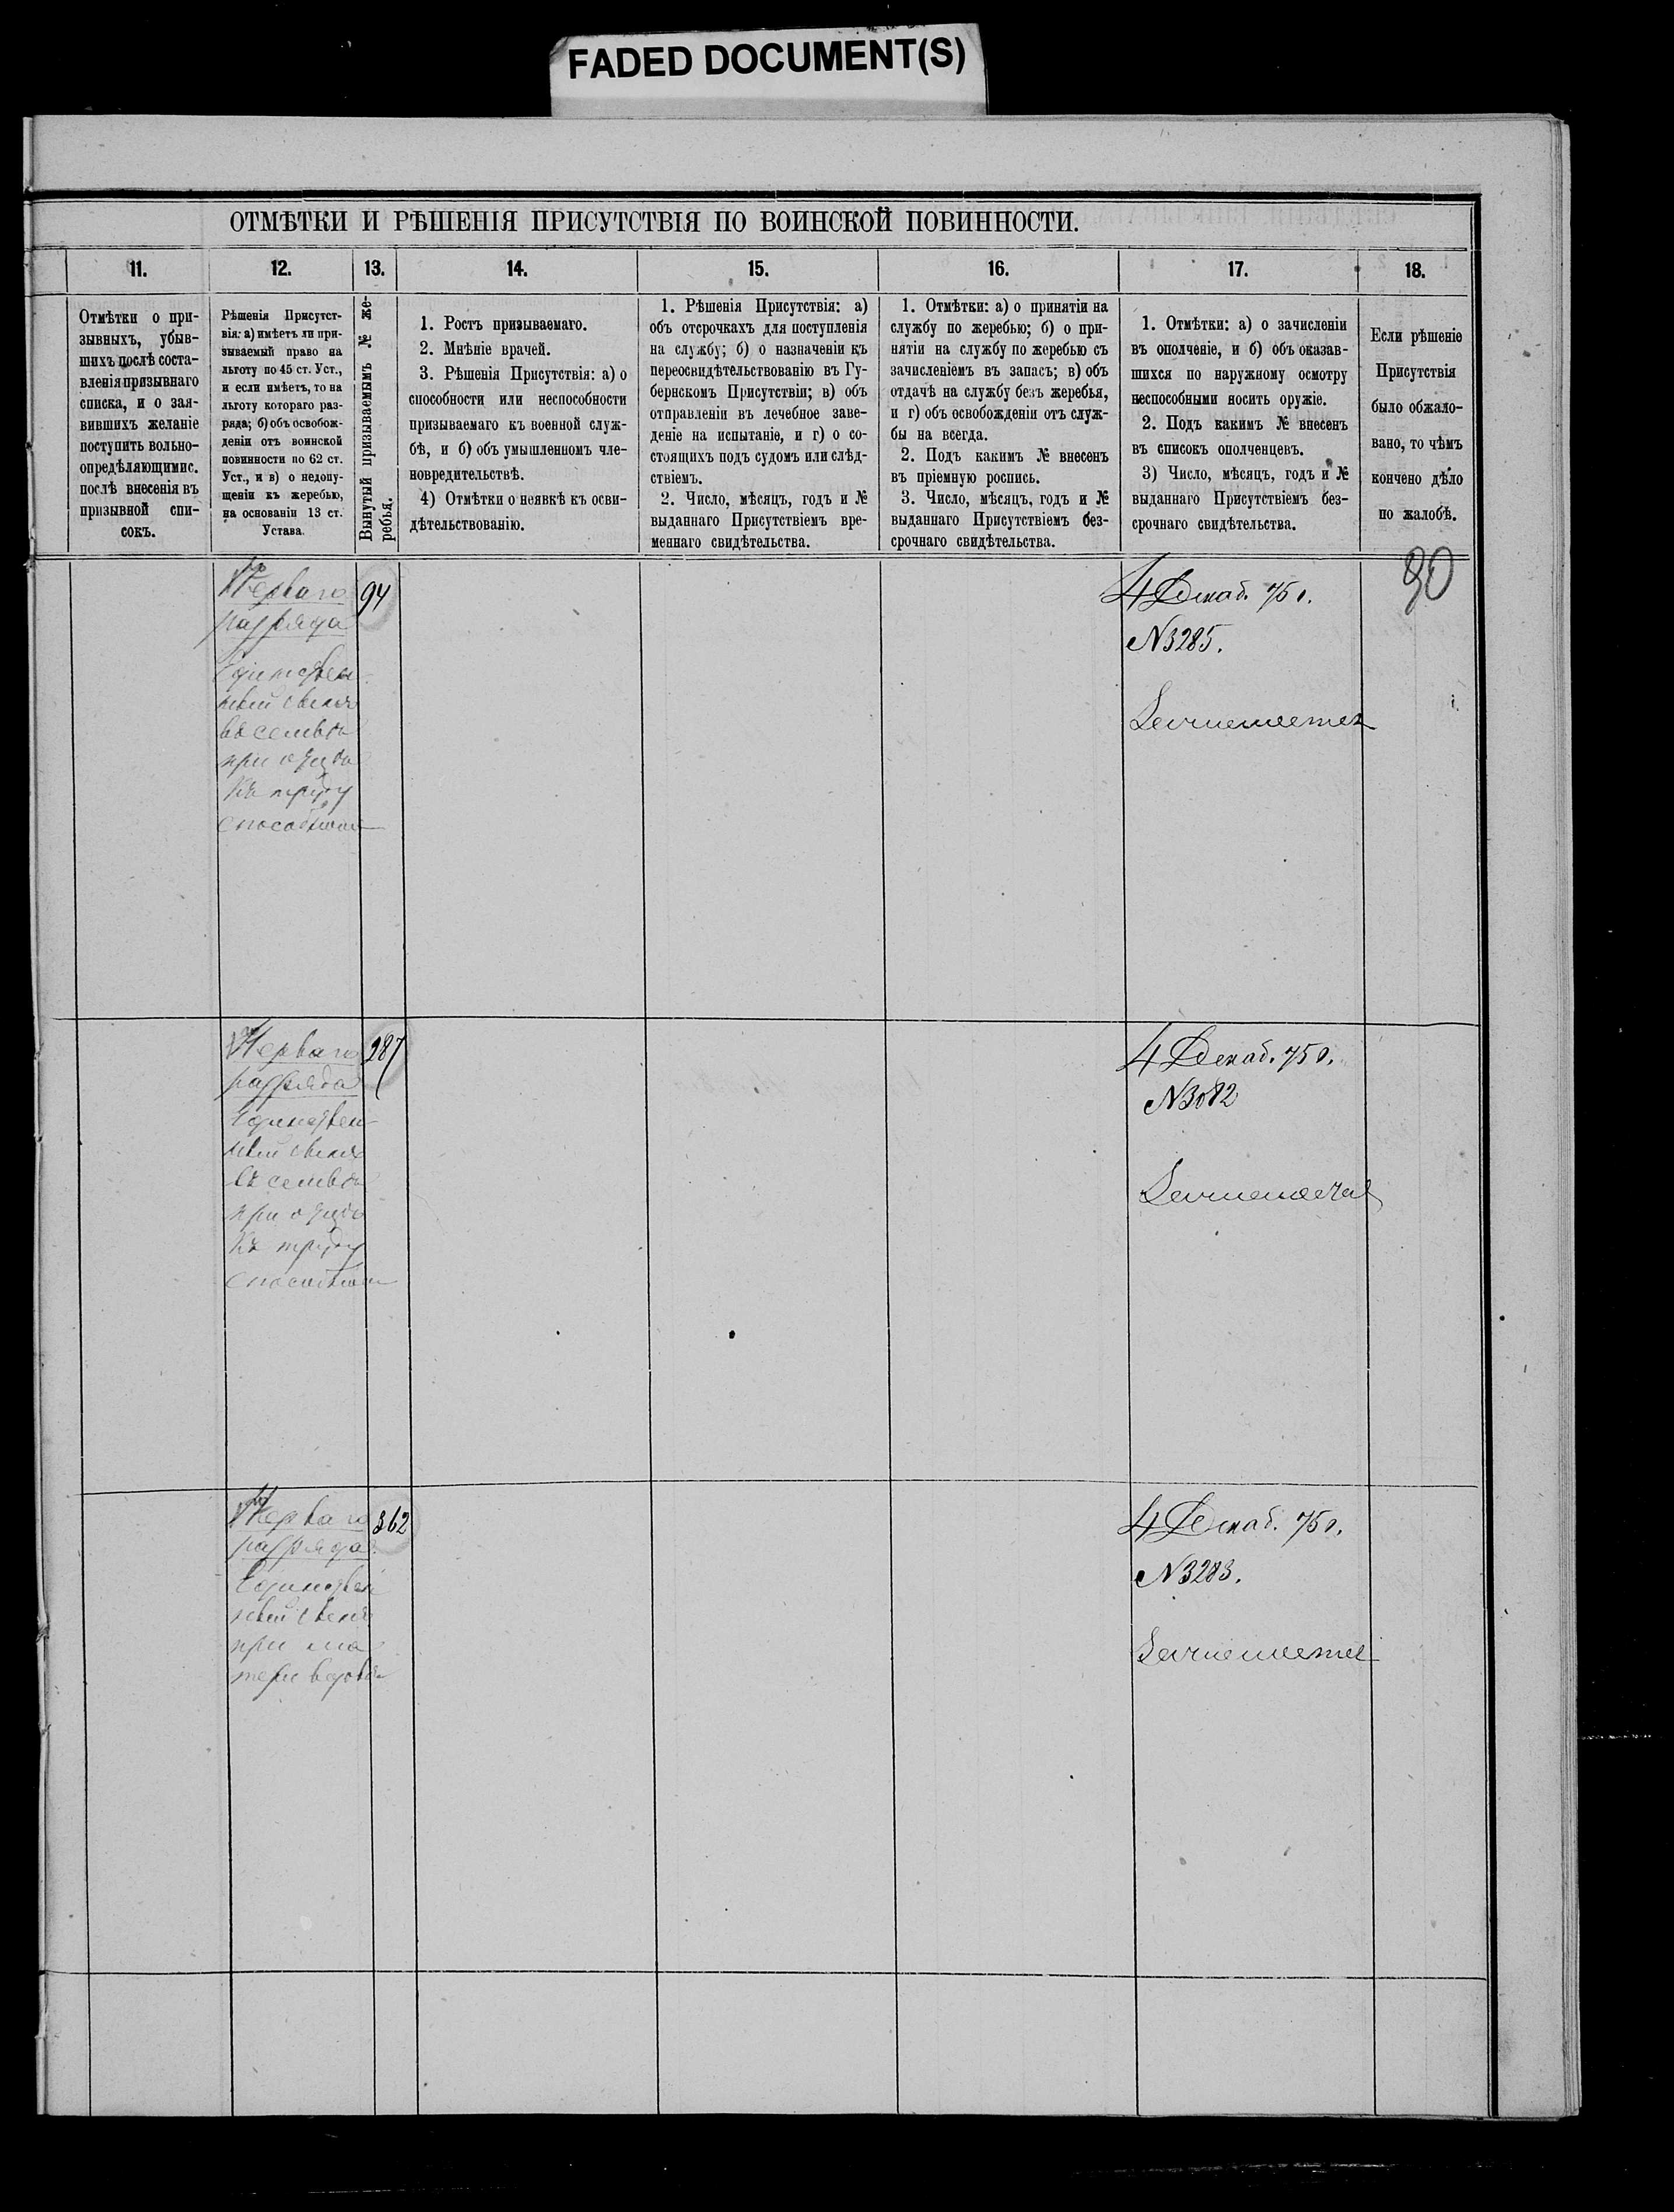 FADED DOCUMENT(S)
ОТМѢТКИ И РѢШЕНІЯ ПРИСУТСТВІЯ ПО ВОИНСКОЙ ПОВИННОСТИ.
11.
12.
13.
14.
15.
16.
17.
18.
Отмѣтки о при-
зывныхъ, убыв-
шихъ послѣ соста-
вленія призывнаго
списка, и о зая-
вившихъ желаніе
поступить вольно-
опредѣляющимис.
послѣ внесенія въ
призывной спи-
сокъ.
Рѣшенія Присутст-
вія: а) имѣетъ ли при-
зываемый право на
льготу по 45 ст. Уст.,
и если имѣетъ, то на
льготу котораго раз-
ряда; б) объ освобож-
деніи отъ воинской
повинности по 62 ст.
Уст., и в) о недопу-
щеніи къ жеребью,
на основаніи 13 ст.
Устава.
Вынутый призываемымъ № же-
ребья.
1. Ростъ призываемаго.
2. Мнѣніе врачей.
3. Рѣшенія Присутствія: а) о
способности или неспособности
призываемаго къ военной служ-
бѣ, и б) объ умышленномъ чле-
новредительствѣ.
4) Отмѣтки о неявкѣ къ осви-
дѣтельствованію.
1. Рѣшенія Присутствія: а)
объ отсрочкахъ для поступленія
на службу; б) о назначеніи къ
переосвидѣтельствованію въ Гу-
бернскомъ Присутствіи; в) объ
отправленіи въ лечебное заве-
деніе на испытаніе, и г) о со-
стоящихъ подъ судомъ или слѣд-
ствіемъ.
2. Число, мѣсяцъ, годъ и №
выданнаго Присутствіемъ вре-
меннаго свидѣтельства.
1. Отмѣтки: а) о принятіи на
службу по жеребью; б) о при-
нятіи на службу по жеребью съ
зачисленіемъ въ запасъ; в) объ
отдачѣ на службу безъ жеребья,
и г) объ освобожденіи отъ служ-
бы на всегда.
2. Подъ какимъ № внесенъ
въ пріемную роспись.
3. Число, мѣсяцъ, годъ и №
выданнаго Присутствіемъ без-
срочнаго свидѣтельства.
1. Отмѣтки: а) о зачисленіи
въ ополченіе, и б) объ оказав-
шихся по наружному осмотру
неспособными носить оружіе.
2. Подъ какимъ № внесенъ
въ списокъ ополченцевъ.
3) Число, мѣсяцъ, годъ и №
выданнаго Присутствіемъ без-
срочнаго свидѣтельства.
Если рѣшеніе
Присутствія
было обжало-
вано, то чѣмъ
кончено дѣло
по жалобѣ.
90
Перваго
разряда
Единствен-
ный сынъ
въ семьѣ
при отцѣ
къ труду
способномъ
94
4 Декаб. 75 г.
№3285.
Перваго
разряда
Единствен-
ный сынъ
въ семьѣ
при отцѣ
къ труду
способномъ
287
4 Декаб. 75 г.
№3082
Перваго
разряда
Единствен
ный сынъ
при ма
тери вдовѣ
362
4 Декаб. 75 г.
№3283.